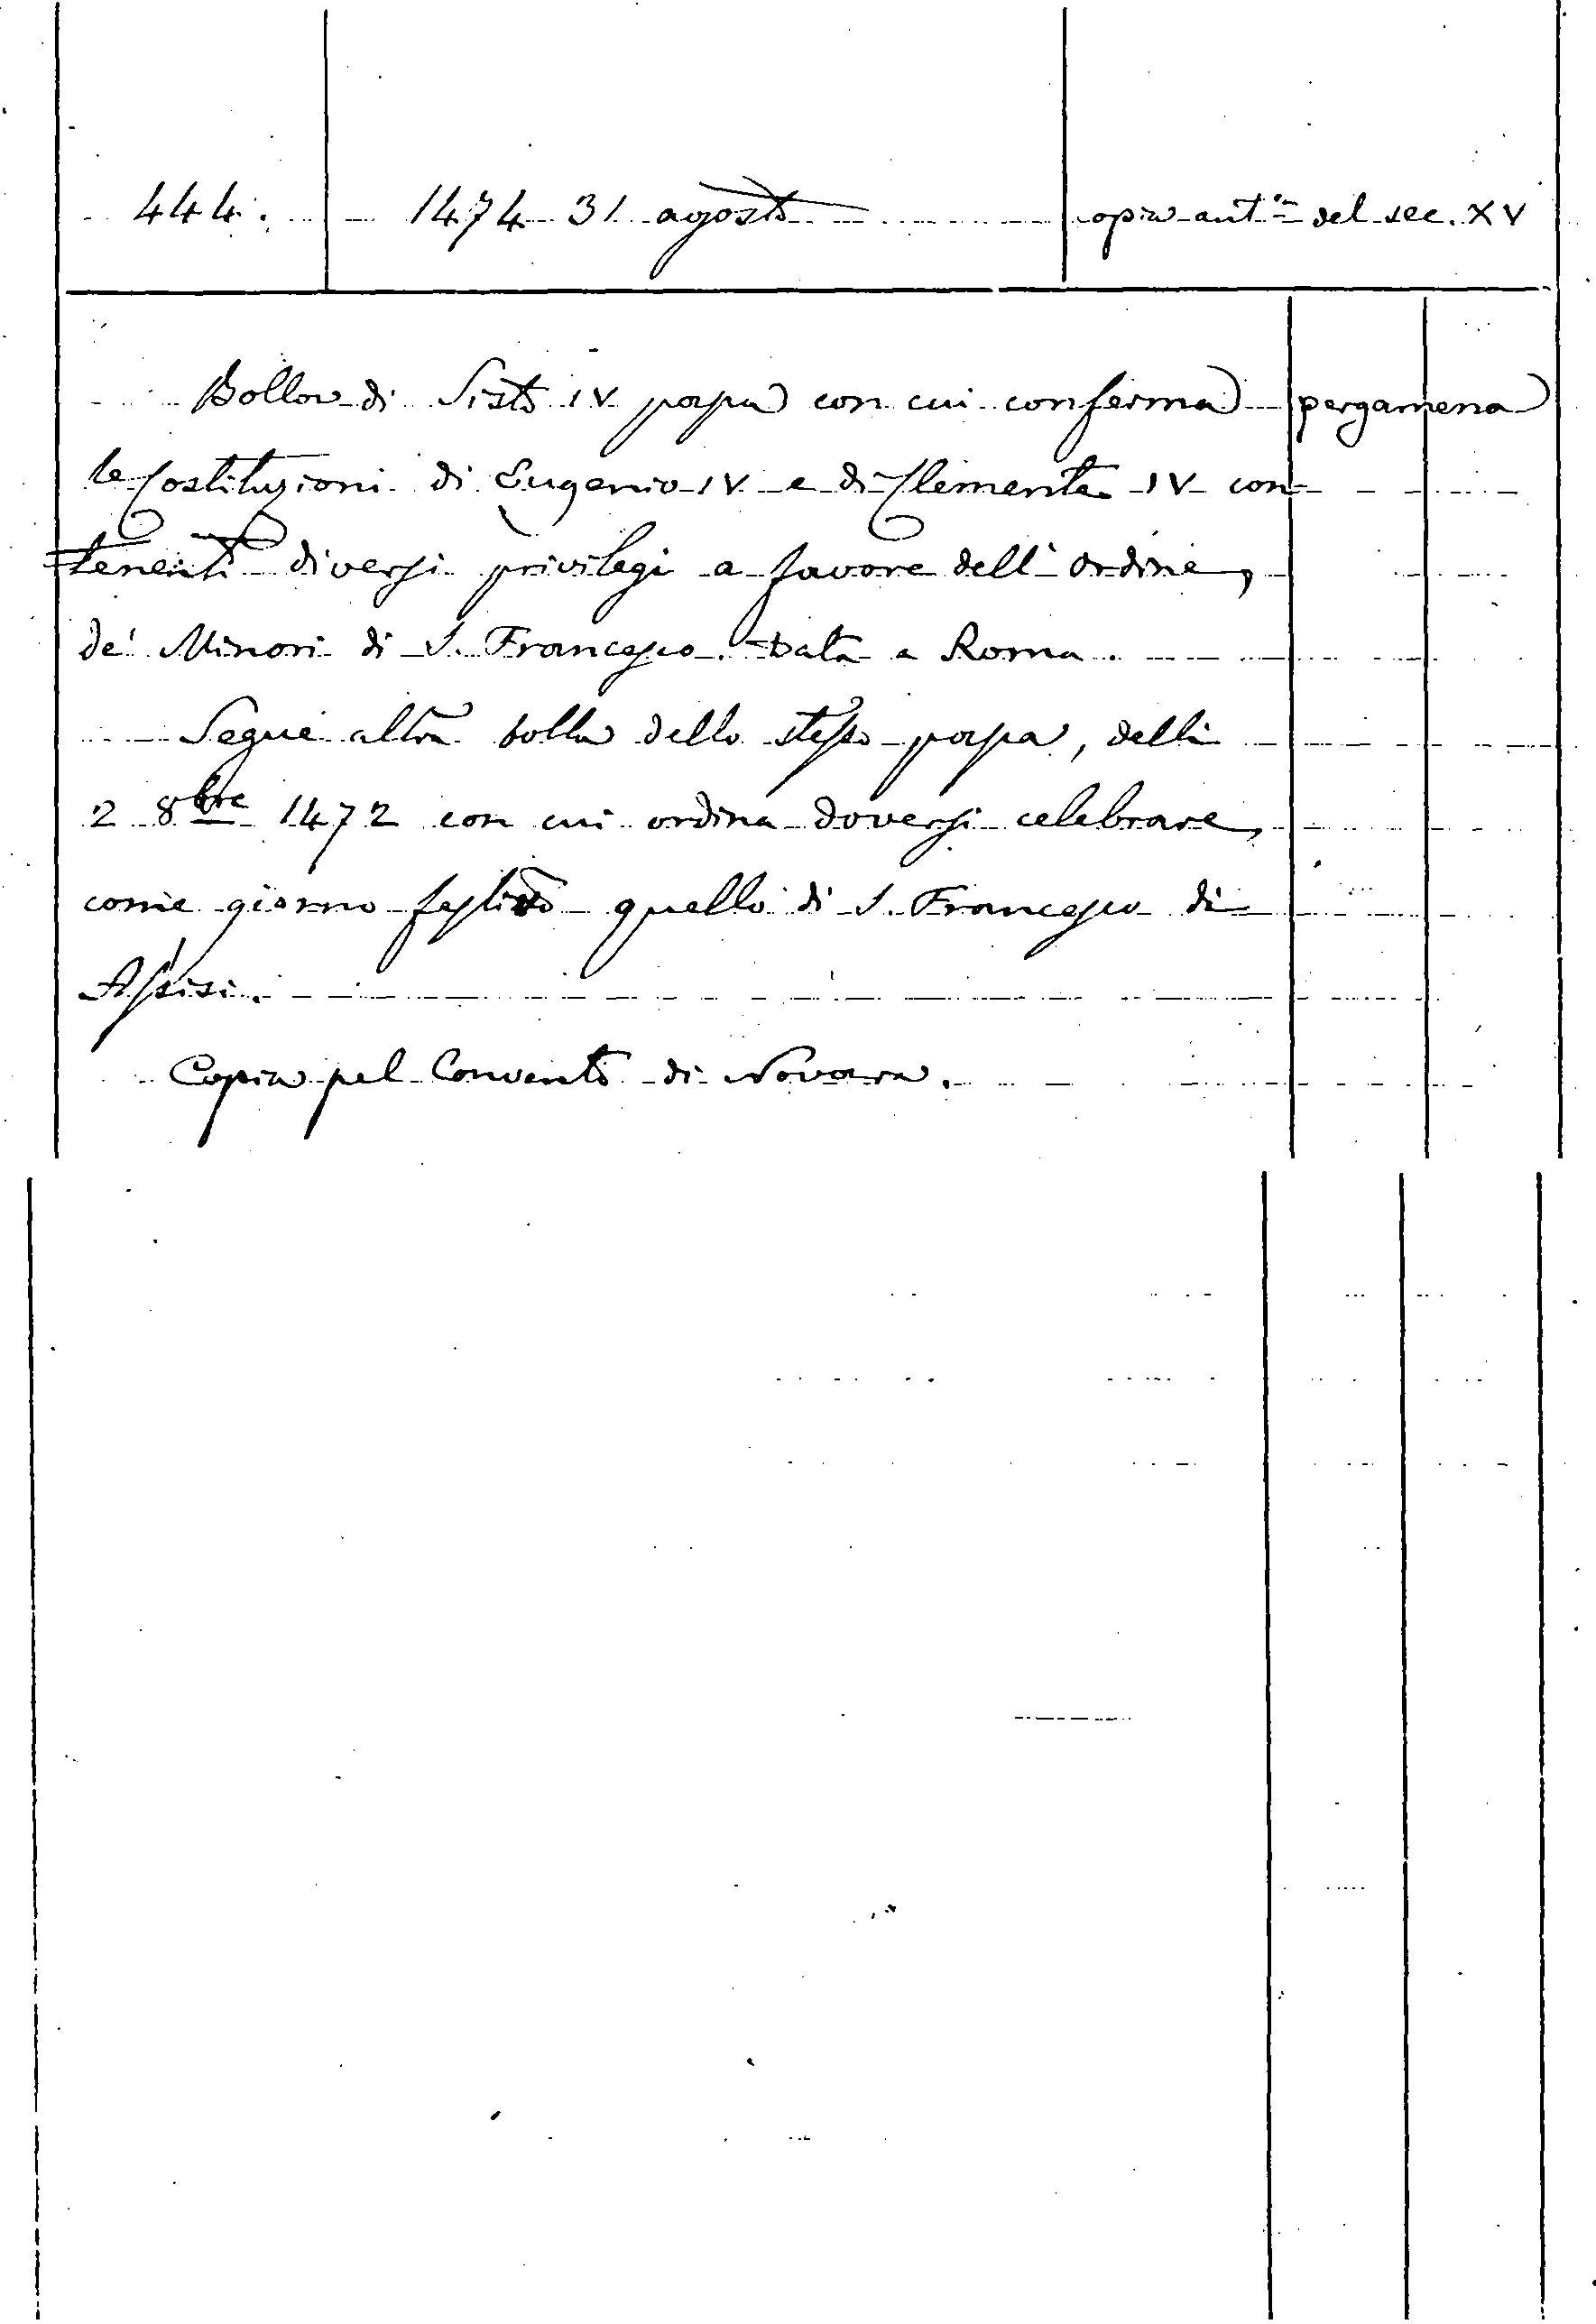 444. 1474 31 agosto copia ant.ca del sec. XV
Bolla di Sisto IV papa con cui conferma pergamena
le Costituzioni di Eugenio IV e di Clemente IV con-
tenenti diversi privilegi a favore dell'ordine
de' Minori di S. Francesco. Data a Roma.
Segue altra bolla dello stesso papa, delli
2 8bre 1472 con cui ordina doversi celebrare
come giorno festivo quello di S. Francesco di
Assisi.
Copia pel Convento di Novara.